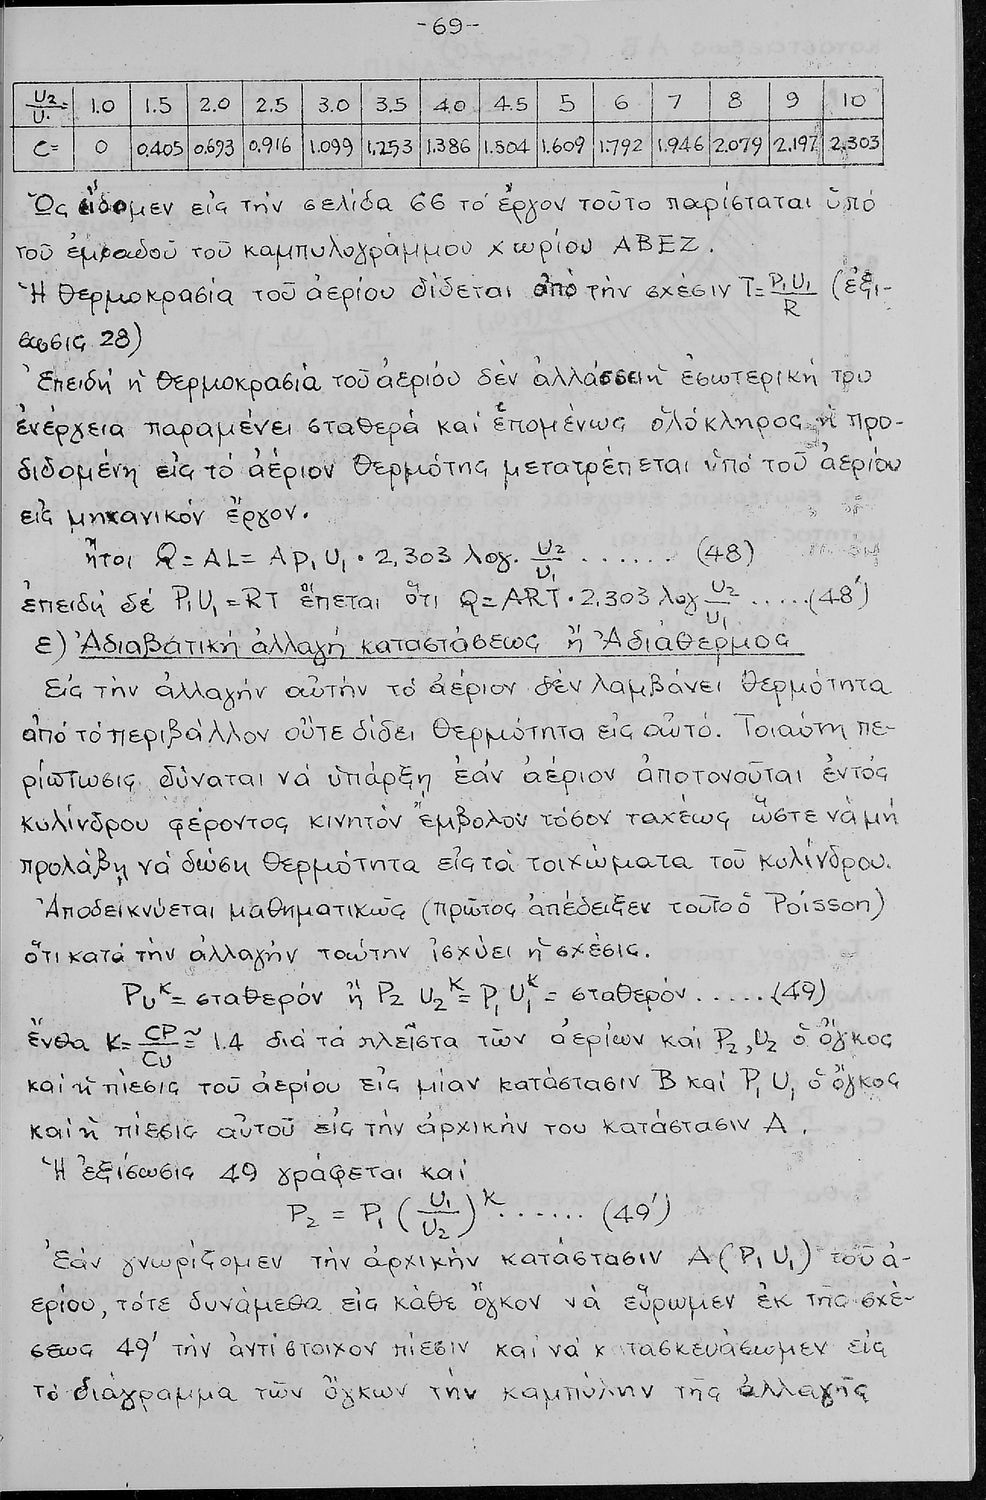 -69-
U2/U1= 1.0 1.5 2.0 2.5 3.0 3.5 4.0 4.5 5 6 7 8 9 10
C= 0 0.405 0.693 0.916 1.099 1.253 1.386 1.504 1.609 1.792 1.946 2.079 2.197 2.303
Ὡς εἴδομεν εἰς τήν σελίδα 66 τό ἔργον τοῦτο παρίσταται ὑπό
τοῦ ἐμβαδοῦ τοῦ καμπυλογράμμου χωρίου ΑΒΕΖ.
Ἡ θερμοκρασία τοῦ ἀερίου δίδεται ἀπό τήν σχέσιν T= P1 U1/R (ἐξί-
σωσις 28)
Ἐπειδή ἡ θερμοκρασία τοῦ ἀερίου δέν ἀλλάσσει ἡ ἐσωτερική του
ἐνέργεια παραμένει σταθερά καί ἑπομένως ὁλόκληρος ἡ προ-
διδομένη εἰς τό ἀέριον θερμότης μετατρέπεται ὑπό τοῦ ἀερίου
εἰς μηχανικόν ἔργον.
ἤτοι Q=AL=AP1U1·2,303 λογ. U2/U1 ....... (48)
ἐπειδή δέ P1U1=RT ἕπεται ὅτι Q=ART·2.303 λογ U2/U1 .....(48')
ε) Ἀδιαβατική ἀλλαγή καταστάσεως ἤ Ἀδιάθερμος
Εἰς τήν ἀλλαγήν αὐτήν τό ἀέριον δέν λαμβάνει θερμότητα
ἀπό τό περιβάλλον οὔτε δίδει θερμότητα εἰς αὐτό. Τοιαύτη πε-
ρίπτωσις δύναται νά ὑπάρξῃ ἐάν ἀέριον ἀποτονοῦται ἐντός
κυλίνδρου φέροντος κινητόν ἔμβολον τόσον ταχέως ὥστε νά μή
προλάβῃ νά δώσῃ θερμότητα εἰς τά τοιχώματα τοῦ κυλίνδρου.
Ἀποδεικνύεται μαθηματικῶς (πρῶτος ἀπέδειξεν τοῦτο ὁ Poisson)
ὅτι κατά τήν ἀλλαγήν ταύτην ἰσχύει ἡ σχέσις.
PU^K= σταθερόν ἤ P2 U2^K= P1 U1^K= σταθερόν ......(49)
ἔνθα K= CP/CU ≃ 1.4 διά τά πλεῖστα τῶν ἀερίων καί P2,U2 ὁ ὄγκος
καί ἡ πίεσις τοῦ ἀερίου εἰς μίαν κατάστασιν Β καί P1 U1 ὁ ὄγκος
καί ἡ πίεσις αὐτοῦ εἰς τήν ἀρχικήν του κατάστασιν Α.
Ἡ ἐξίσωσις 49 γράφεται καί
P2 = P1 (U1/U2)^K ...... (49')
Ἐάν γνωρίζομεν τήν ἀρχικήν κατάστασιν Α(P1 U1) τοῦ ἀ-
ερίου, τότε δυνάμεθα εἰς κάθε ὄγκον νά εὕρωμεν ἐκ τῆς σχέ-
σεως 49' τήν ἀντίστοιχον πίεσιν καί νά κατασκευάσωμεν εἰς
τό διάγραμμα τῶν ὄγκων τήν καμπύλην τῆς ἀλλαγῆς